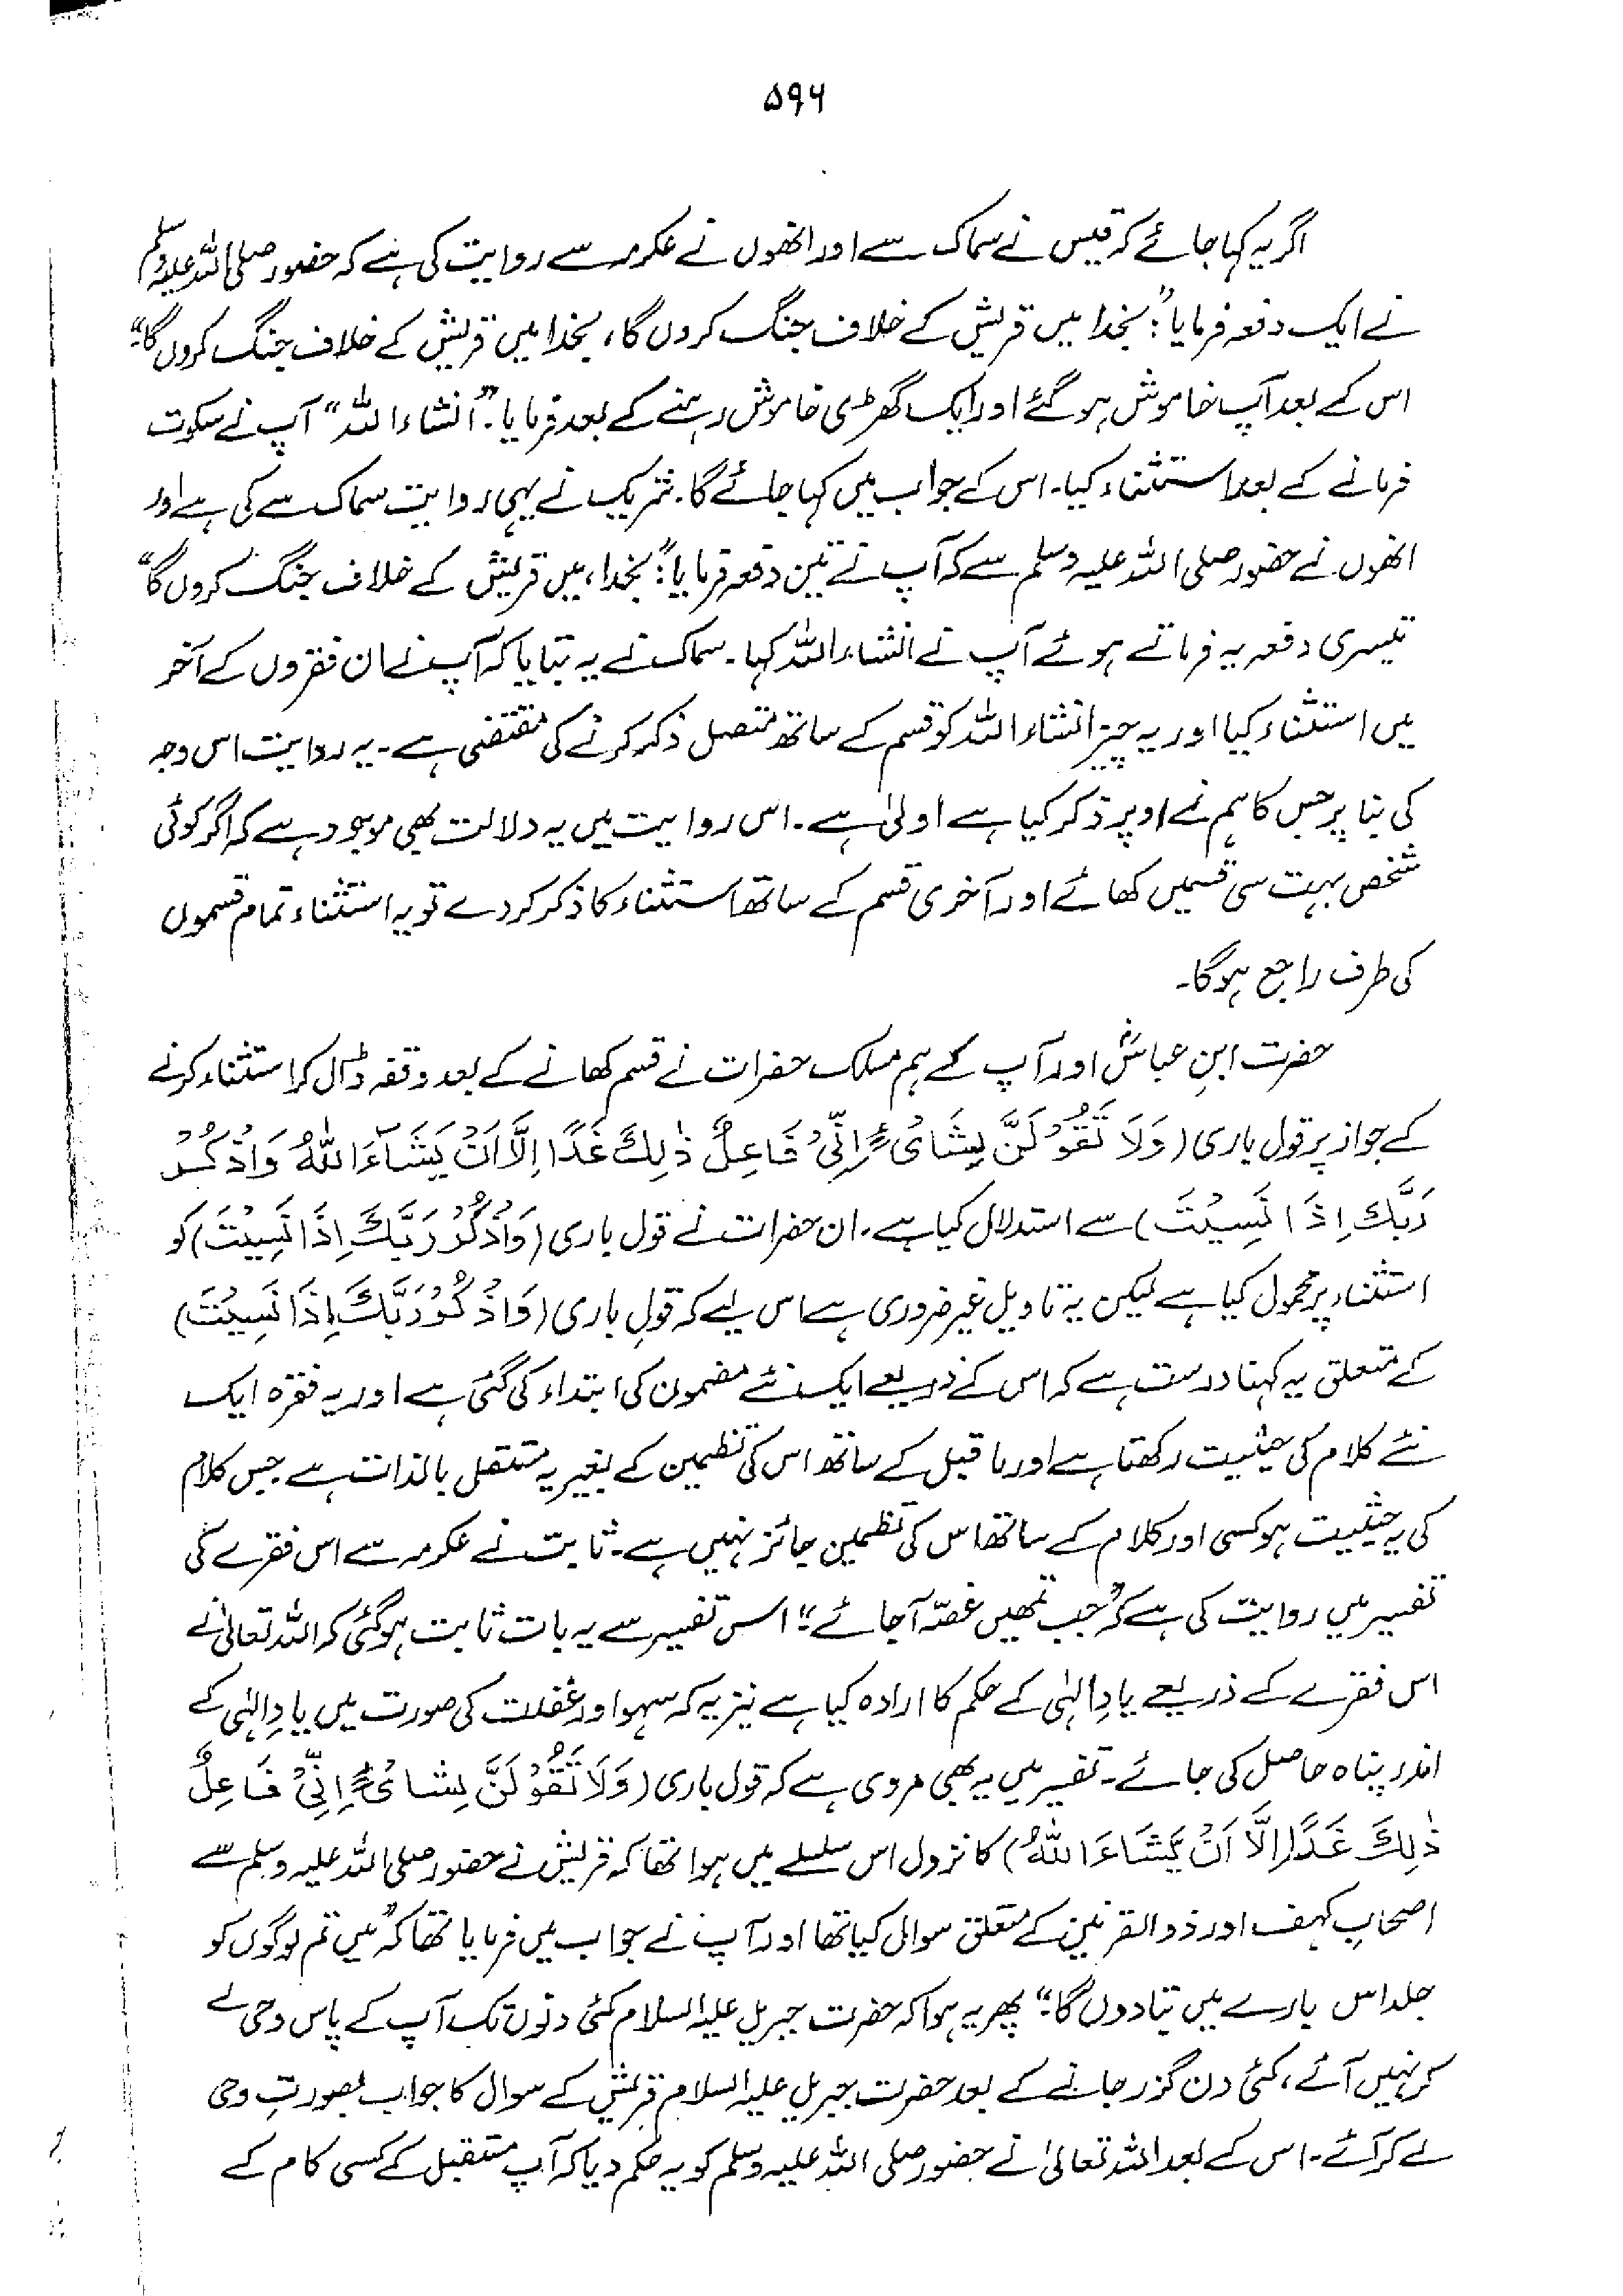 ۵۹۶
اگر یہ کہا جائے کہ قیس نے سماک سے اور انھوں نے عکرمہ سے روایت کی ہے کہ حضور صلی اللہ علیہ وسلم
نے ایک دفعہ فرمایا: "بخدا میں قریش کے خلاف جنگ کروں گا، بخدا میں قریش کے خلاف جنگ کروں گا۔"
اس کے بعد آپ خاموش ہو گئے اور ایک گھڑی خاموش رہنے کے بعد فرمایا۔ "انشاء اللہ" آپ نے سکوت
فرمانے کے بعد استثناء کیا۔ اس کے جواب میں کہا جائے گا۔ شریک نے یہی روایت سماک سے کی ہے اور
انھوں نے حضور صلی اللہ علیہ وسلم سے کہ آپ نے تین دفعہ فرمایا: "بخدا، میں قریش کے خلاف جنگ کروں گا"
تیسری دفعہ یہ فرماتے ہوئے آپ نے انشاء اللہ کہا۔ سماک نے یہ بتایا کہ آپ نے ان فقروں کے آخر
میں استثناء کیا اور یہ چیز انشاء اللہ کو قسم کے ساتھ متصل ذکر کرنے کی مقتضی ہے۔ یہ روایت اس وجہ
کی بنا پر جس کا ہم نے اوپر ذکر کیا ہے اولیٰ ہے۔ اس روایت میں یہ دلالت بھی موجود ہے کہ اگر کوئی
شخص بہت سی قسمیں کھائے اور آخری قسم کے ساتھ استثناء کا ذکر کر دے تو یہ استثناء تمام قسموں
کی طرف راجع ہوگا۔
حضرت ابنِ عباسؓ اور آپ کے ہم مسلک حضرات نے قسم کھانے کے بعد وقفہ ڈال کر استثناء کرنے
کے جواز پر قول باری (وَلَا تَقُوْلَنَّ لِشَایْءٍ اِنِّیْ فَاعِلٌ ذٰلِكَ غَدًا اِلَّا اَنْ یَّشَآءَ اللّٰهُ وَاذْكُرْ
رَبَّكَ اِذَا نَسِیْتَ) سے استدلال کیا ہے۔ ان حضرات نے قول باری (وَاذْكُرْ رَبَّكَ اِذَا نَسِیْتَ) کو
استثناء پر محمول کیا ہے لیکن یہ تاویل غیر ضروری ہے اس لیے کہ قولِ باری (وَاذْكُرْ رَبَّكَ اِذَا نَسِیْتَ)
کے متعلق یہ کہنا درست ہے کہ اس کے ذریعے ایک نئے مضمون کی ابتداء کی گئی ہے اور یہ فقرہ ایک
نئے کلام کی حیثیت رکھتا ہے اور ماقبل کے ساتھ اس کی تظمین کے بغیر یہ مستقل بالذات ہے جس کلام
کی یہ حیثیت ہو کسی اور کلام کے ساتھ اس کی تظمین جائز نہیں ہے۔ ثابت نے عکرمہ سے اس فقرے کی
تفسیر میں روایت کی ہے کہ "جب تمھیں غصّہ آجائے"؛ اس تفسیر سے یہ بات ثابت ہو گئی کہ اللہ تعالیٰ نے
اس فقرے کے ذریعے یادِ الٰہی کے حکم کا ارادہ کیا ہے نیز یہ کہ سہو اور غفلت کی صورت میں یادِ الٰہی کے
اندر پناہ حاصل کی جائے۔ تفسیر میں یہ بھی مروی ہے کہ قول باری (وَلَا تَقُوْلَنَّ لِشَایْءٍ اِنِّیْ فَاعِلٌ
ذٰلِكَ غَدًا اِلَّا اَنْ یَّشَاءَ اللّٰهُ) کا نزول اس سلسلے میں ہوا تھا کہ قریش نے حضور صلی اللہ علیہ وسلم سے
اصحابِ کہف اور ذوالقرنین کے متعلق سوال کیا تھا اور آپ نے جواب میں فرمایا تھا کہ "میں تم لوگوں کو
جلد اس بارے میں بتا دوں گا۔" پھر یہ ہوا کہ حضرت جبریل علیہ السلام کئی دنوں تک آپ کے پاس وحی لے
کر نہیں آئے، کئی دن گزر جانے کے بعد حضرت جبریل علیہ السلام قریش کے سوال کا جواب بصورتِ وحی
لے کر آئے۔ اس کے بعد اللہ تعالیٰ نے حضور صلی اللہ علیہ وسلم کو یہ حکم دیا کہ آپ مستقبل کے کسی کام کے